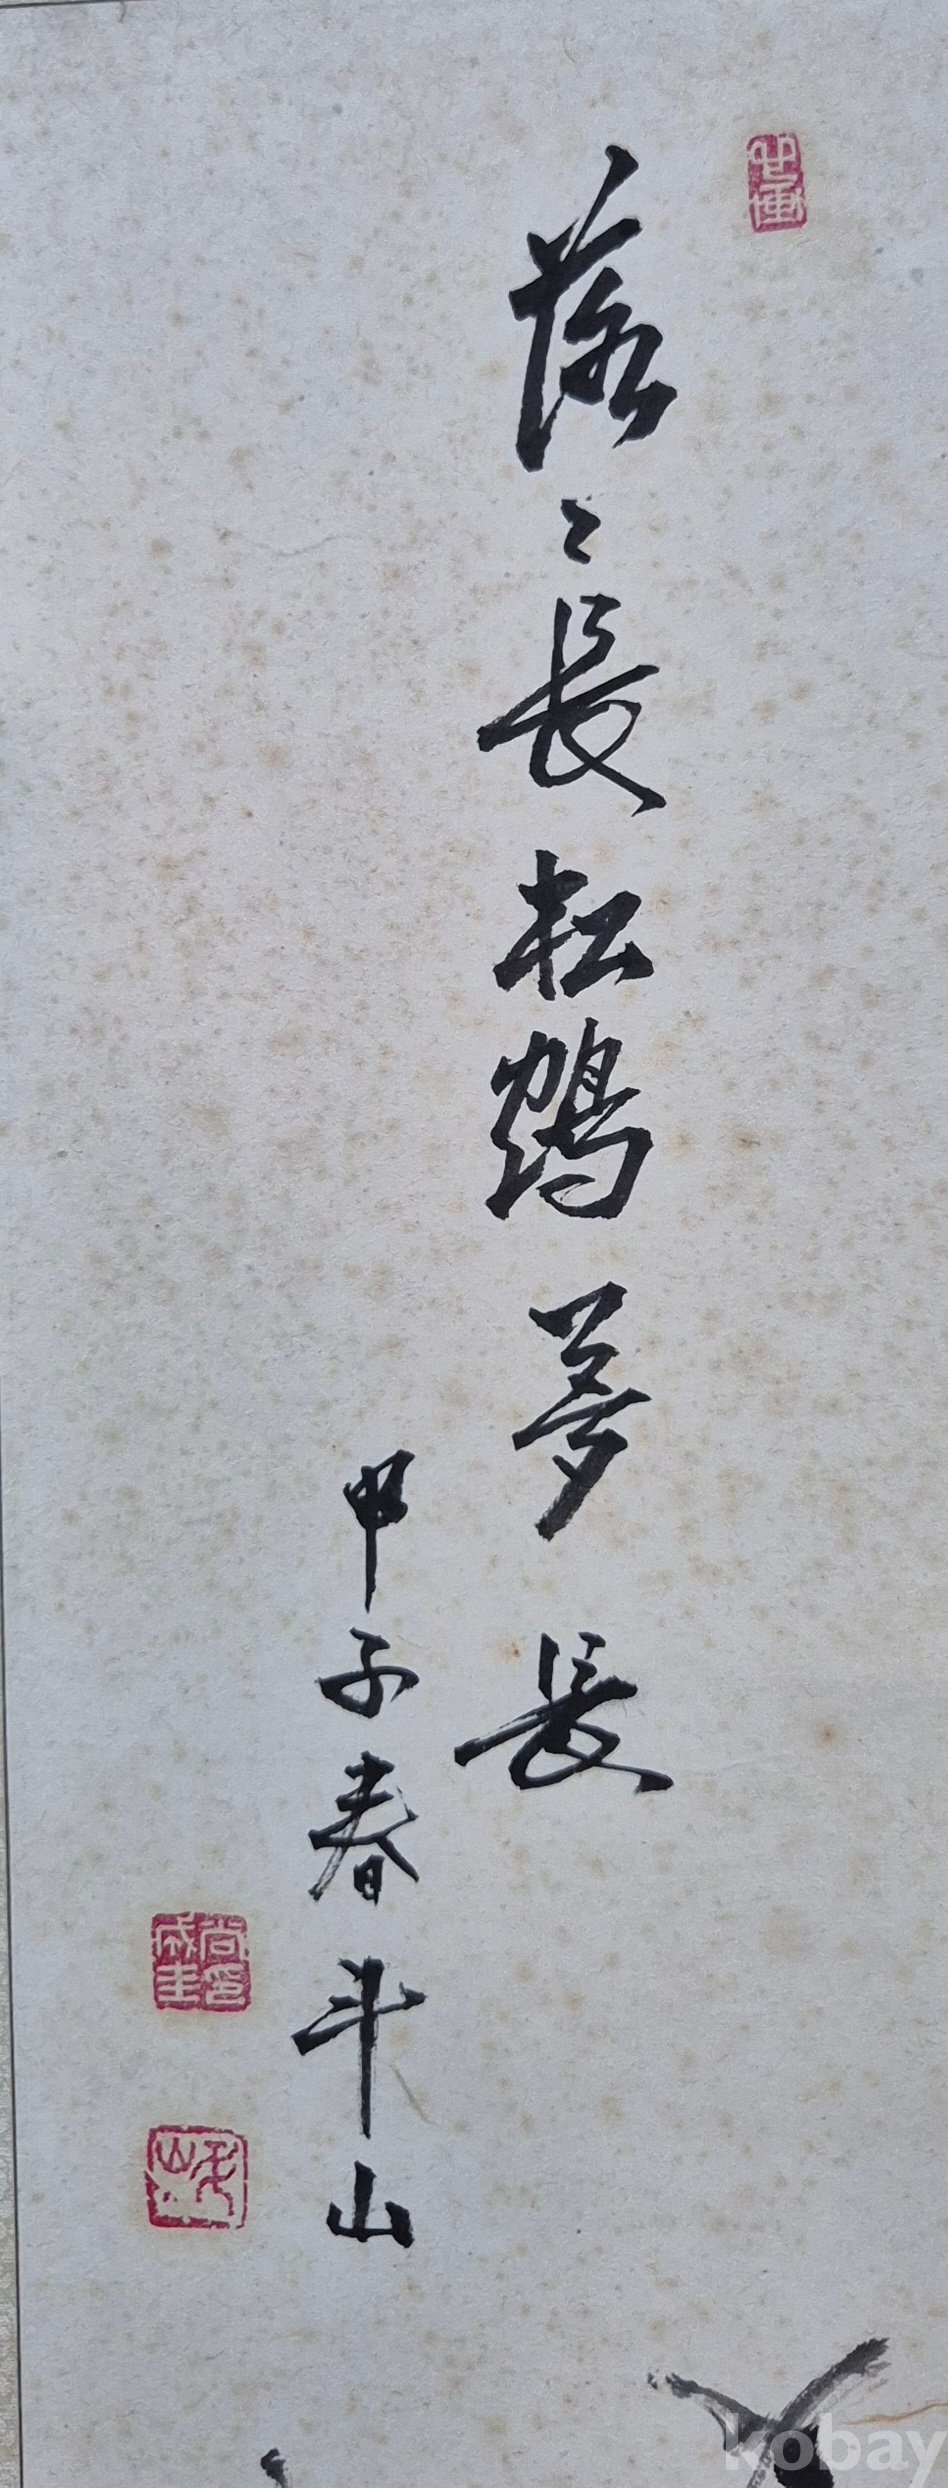 落〻長松鶴夢長
甲子春 斗山
kobay